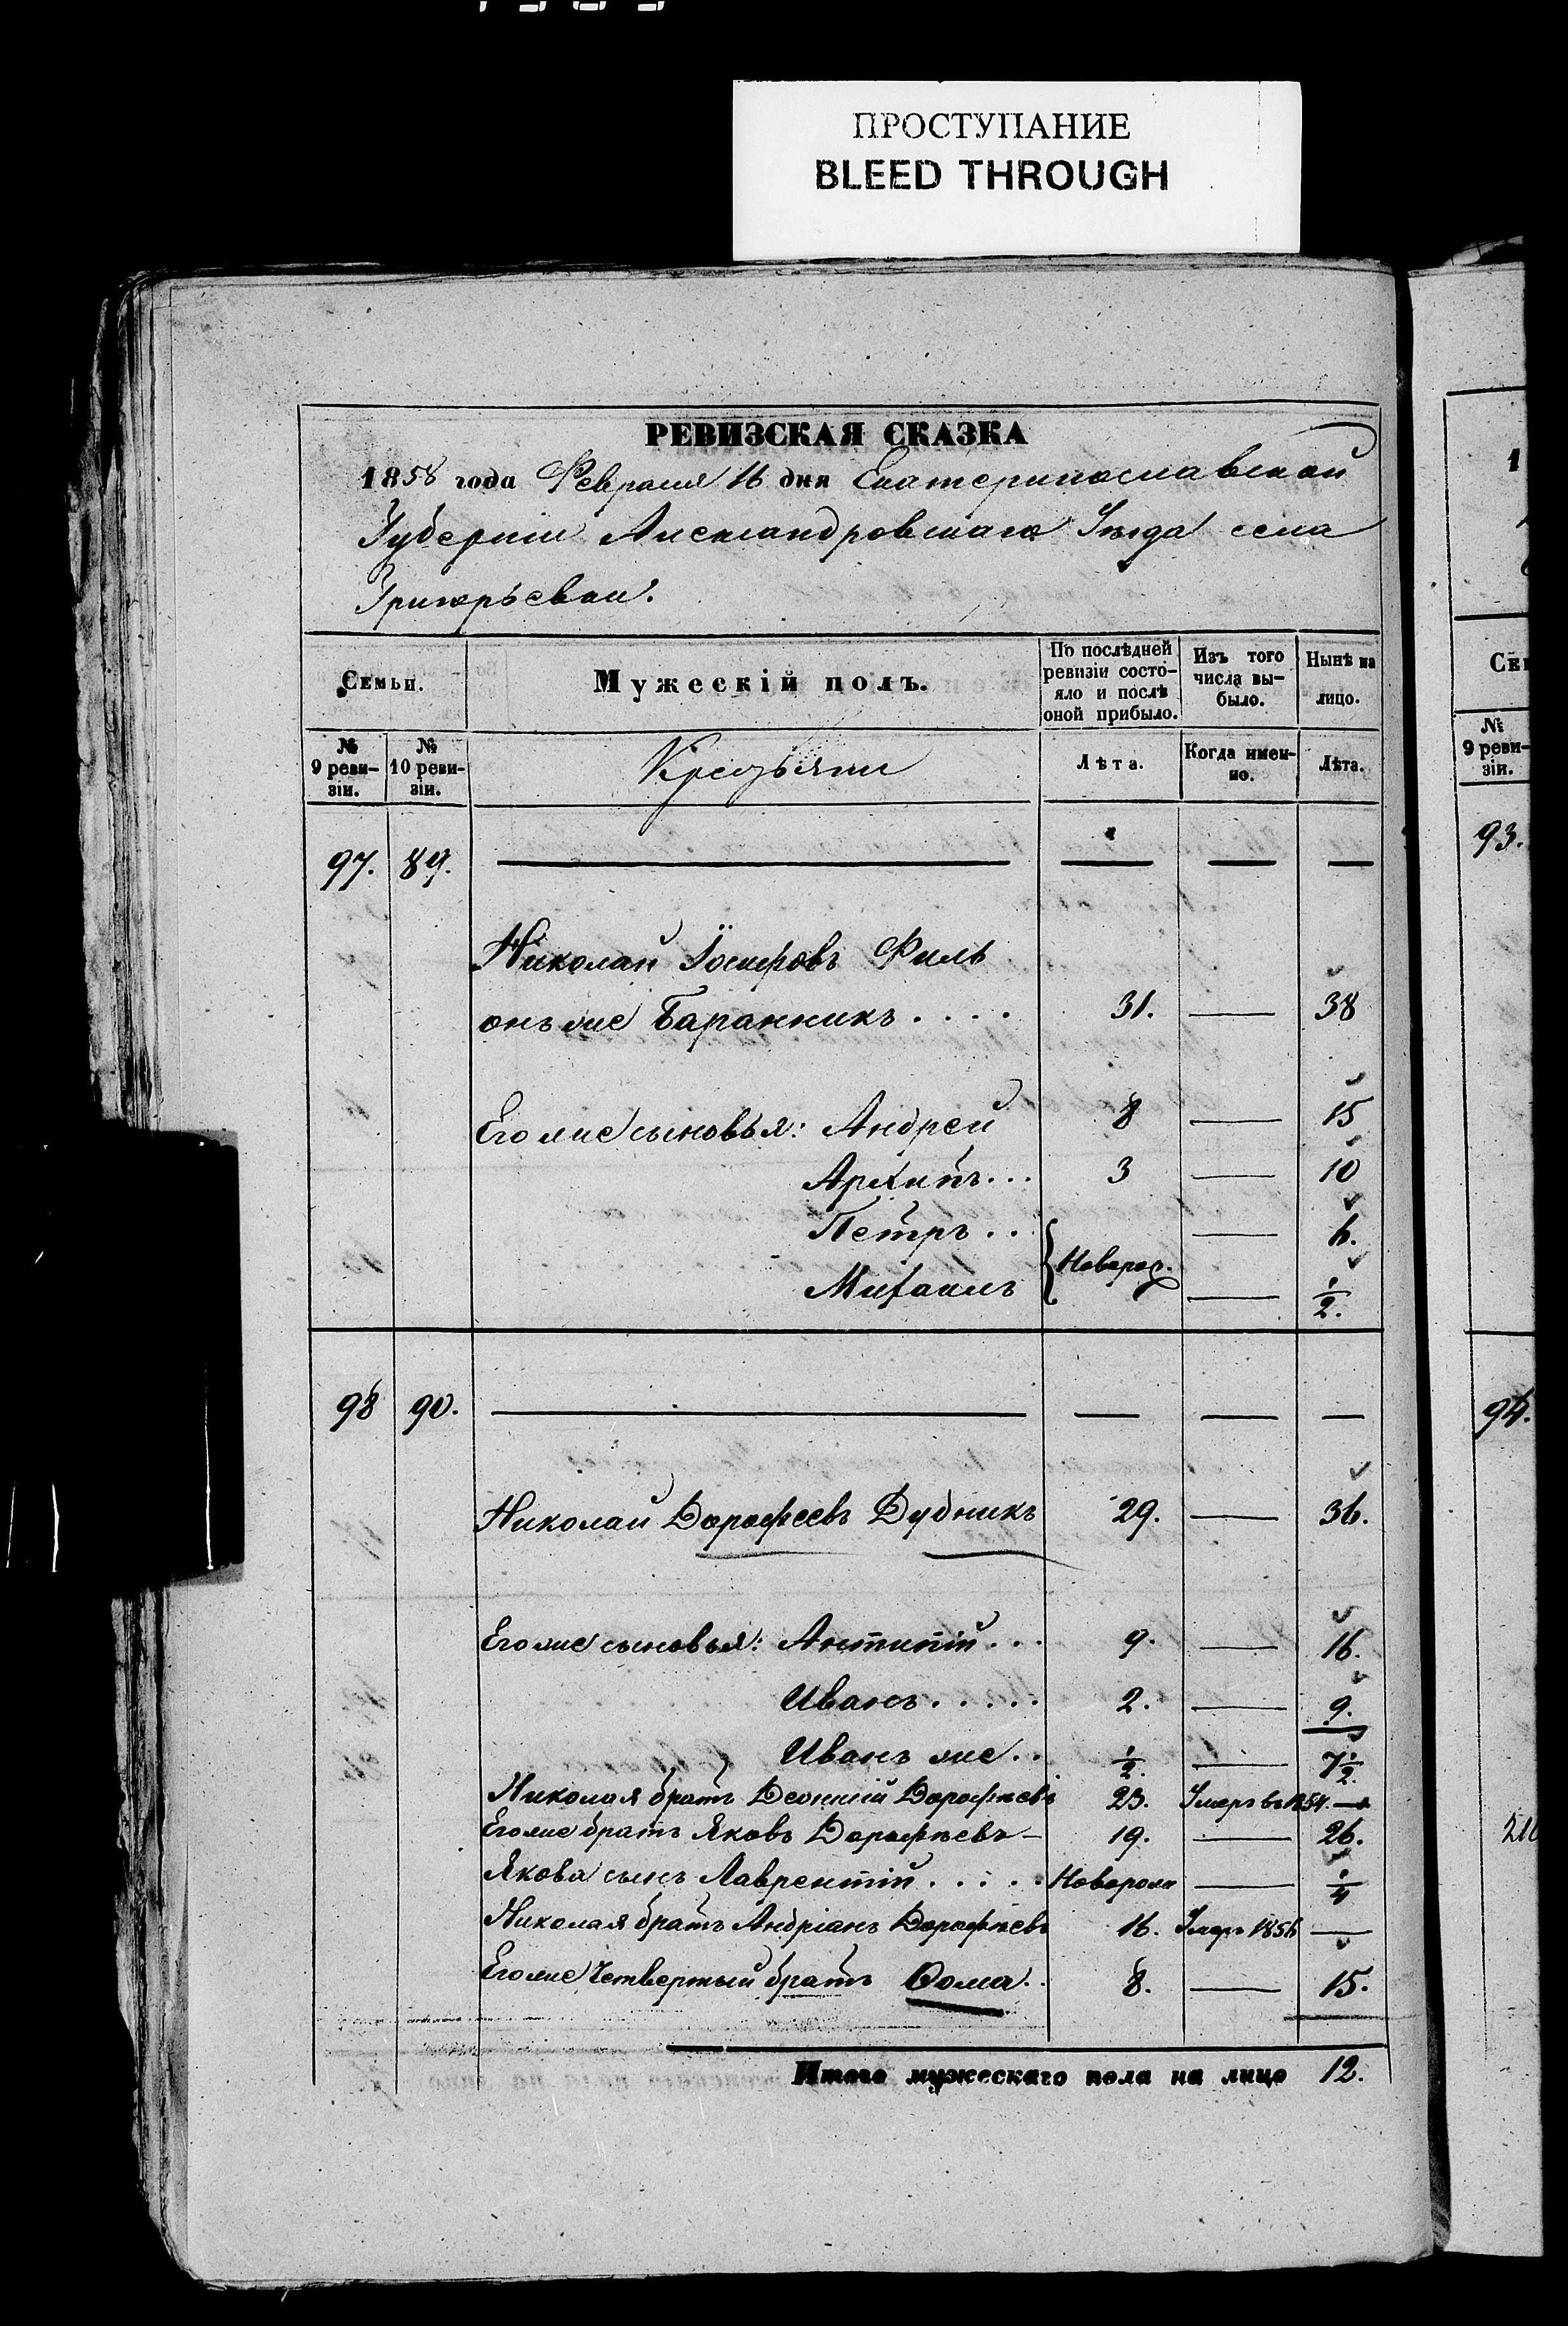 ПРОСТУПАНИЕ
BLEED THROUGH
РЕВИЗСКАЯ СКАЗКА
1858 года Февраля 16 дня Екатеринославской
Губерніи Александровскаго Уѣзда села
Григорьевки.
Семьи.
Мужескій полъ.
По послѣдней ревизіи состо-
яло и послѣ
оной прибыло.
Изъ того
числа вы-
было.
Нынѣ на
лицо.
№ 9 реви-
зіи.
№ 10 реви-
зіи.
Лѣта.
Когда имен-
но.
Лѣта.
97. 89.
Николай Іосифовъ Филь
онъ же Баранникъ .... 31. — 38
Его же сыновья: Андрей 8 — 15
Архипъ... 3 — 10
Петръ.. Новорож. — 6.
Михаилъ — 1/2.
98 90.
Николай Дорофеевъ Дубникъ 29. — 36.
Его же сыновья: Антипій... 9. — 16.
Иванъ..... 2. — 9.
Иванъ же.. 1/2. — 7 1/2.
Николая братъ Леонтій Дорофѣевъ 23. Умеръ въ 1854. —
Его же братъ Яковъ Дорофѣевъ — 19. — 26.
Якова сынъ Лаврентій..... Новорож — 1/4
Николая братъ Андріанъ Дорофѣевъ 16. Умеръ 1856 —
Его же четвертый братъ Ѳома.. 8. — 15.
Итого мужескаго пола на лицо 12.
№
9 реви-
зіи.
93.
94.